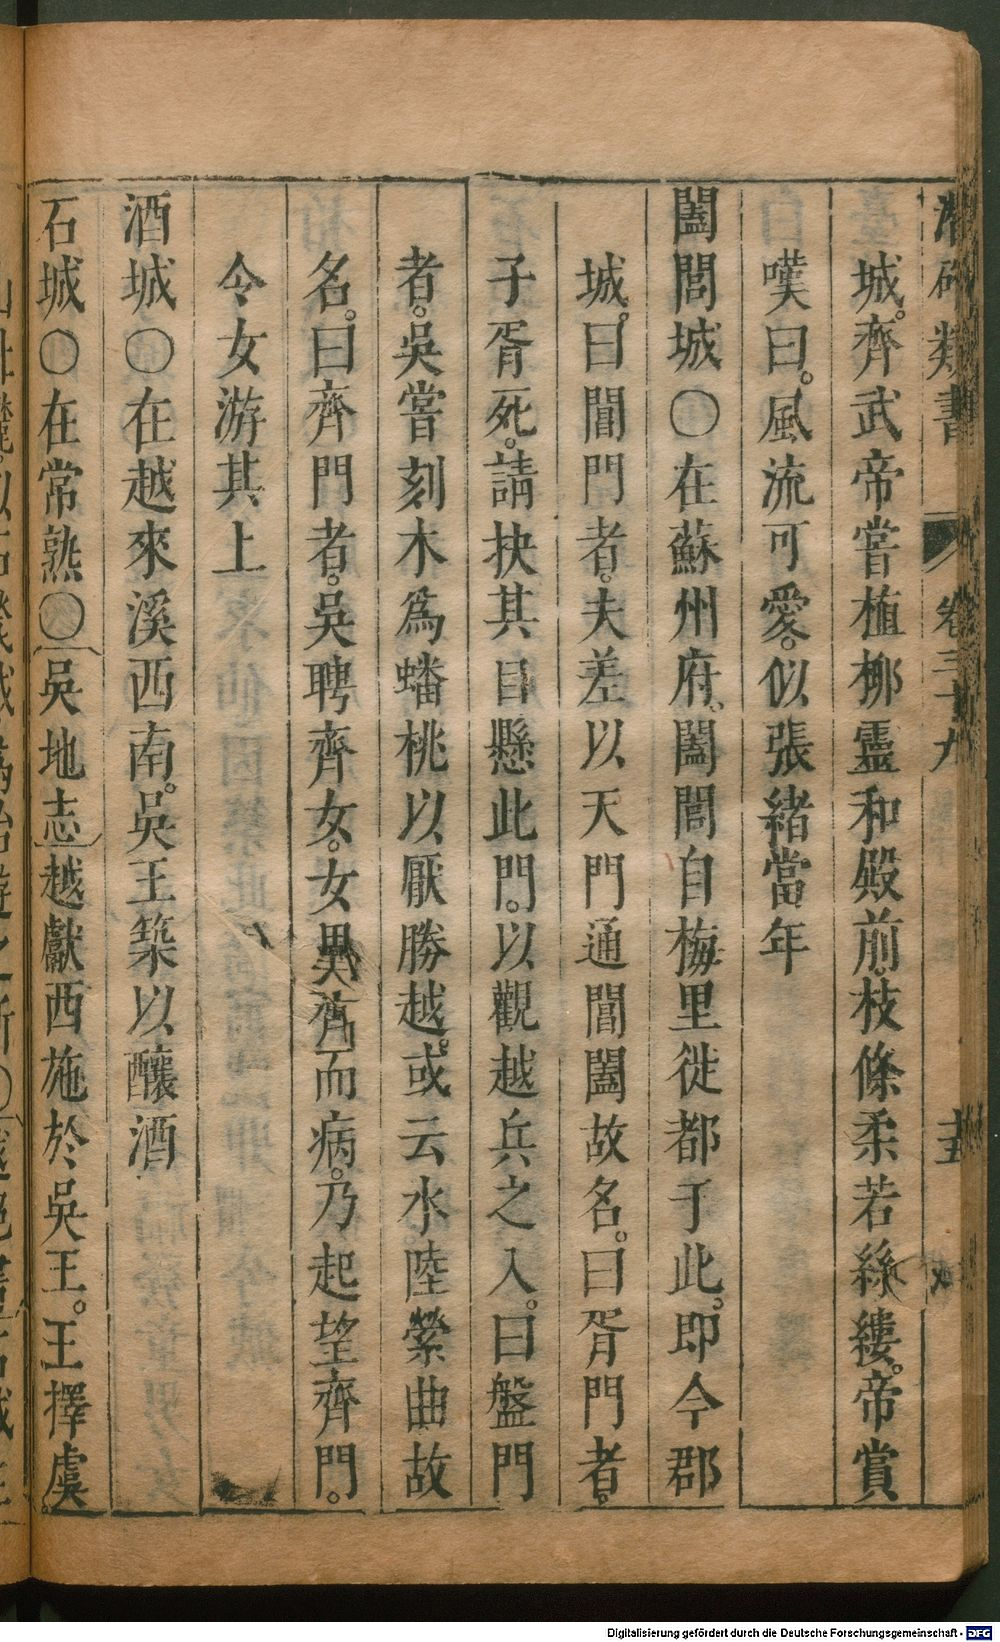 潛確類書 卷三十九
城。齊武帝嘗植柳靈和殿前。枝條柔若絲縷。帝賞
嘆曰。風流可愛。似張緒當年
闔閭城〇在蘇州府。闔閭自梅里徙都于此。即今郡
城。曰閶門者。夫差以天門通閶闔故名。曰胥門者。
子胥死。請抉其目懸此門。以觀越兵之入。曰盤門
者。吳嘗刻木爲蟠桃以厭勝越。或云水陸縈曲故
名。曰齊門者。吳聘齊女。女思齊而病。乃起望齊門。
令女游其上
酒城〇在越來溪西南。吳王築以釀酒
石城〇在常熟〇吳地志越獻西施於吳王。王擇虞
Digitalisierung gefördert durch die Deutsche Forschungsgemeinschaft - DFG